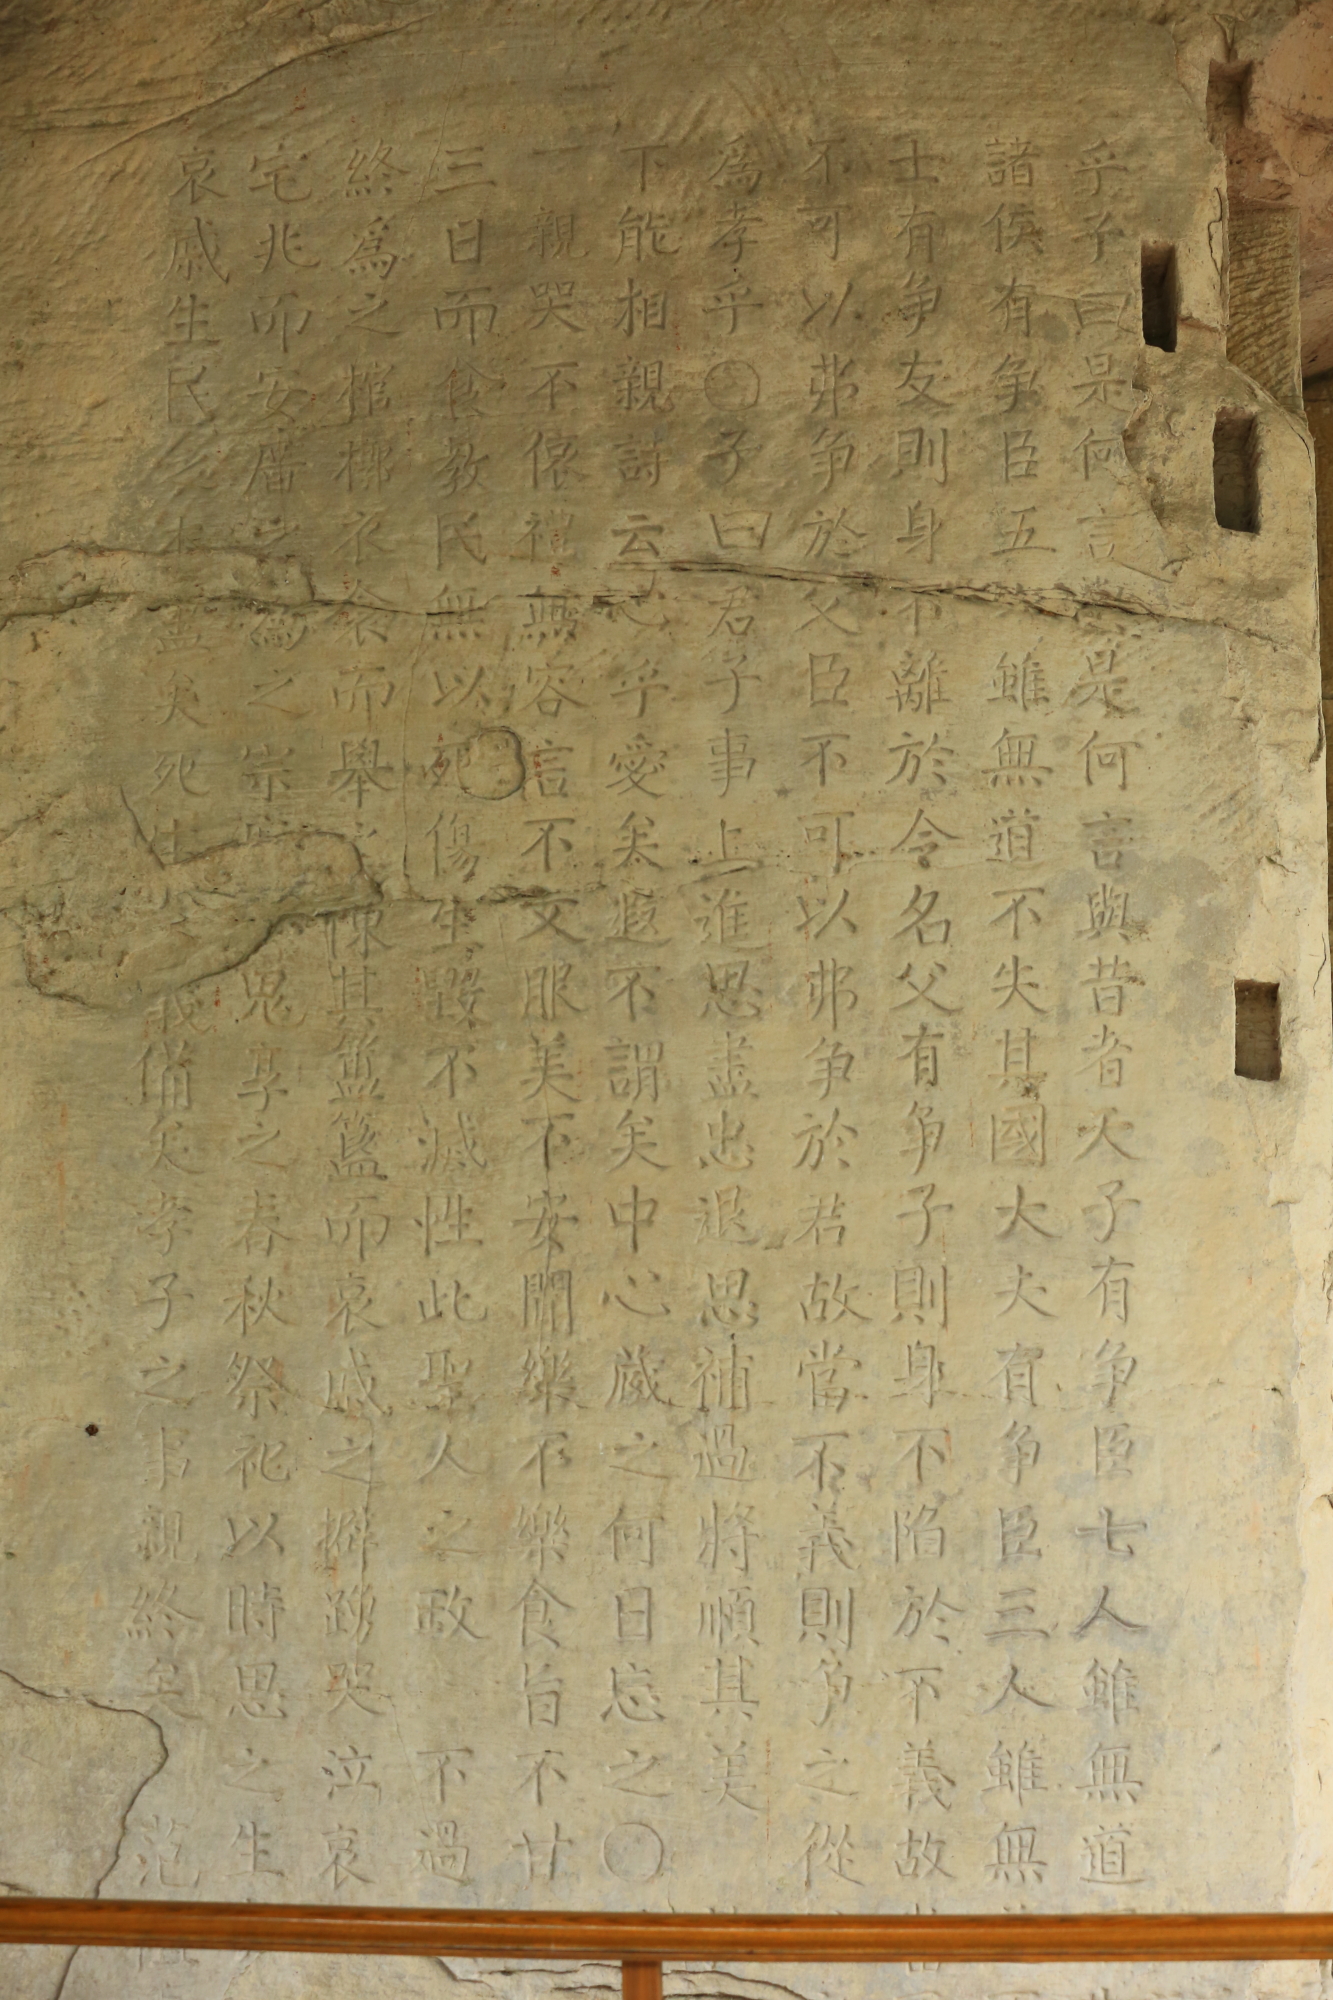 乎子曰是何言與是何言與昔者天子有争臣七人雖無道
諸侯有争臣五雖無道不失其國大夫有争臣三人雖無
士有争友則身不離於令名父有争子則身不陷於不義故
不可以弗争於父臣不可以弗争於君故當不義則争之從
爲孝乎〇子曰君子事上進思盡忠退思補過將順其美
下能相親詩云心乎愛矣遐不謂矣中心藏之何日忘之〇
親哭不依禮無容言不文服美不安聞樂不樂食旨不甘
三日而食教民無以死傷生毀不滅性此聖人之政不過
終爲之棺槨衣衾而舉陳其簠簋而哀戚之擗踊哭泣哀
宅兆而安厝之爲之宗鬼享之春秋祭祀以時思之生
哀戚生民之本盡矣死生之義備矣孝子之事親終矣范